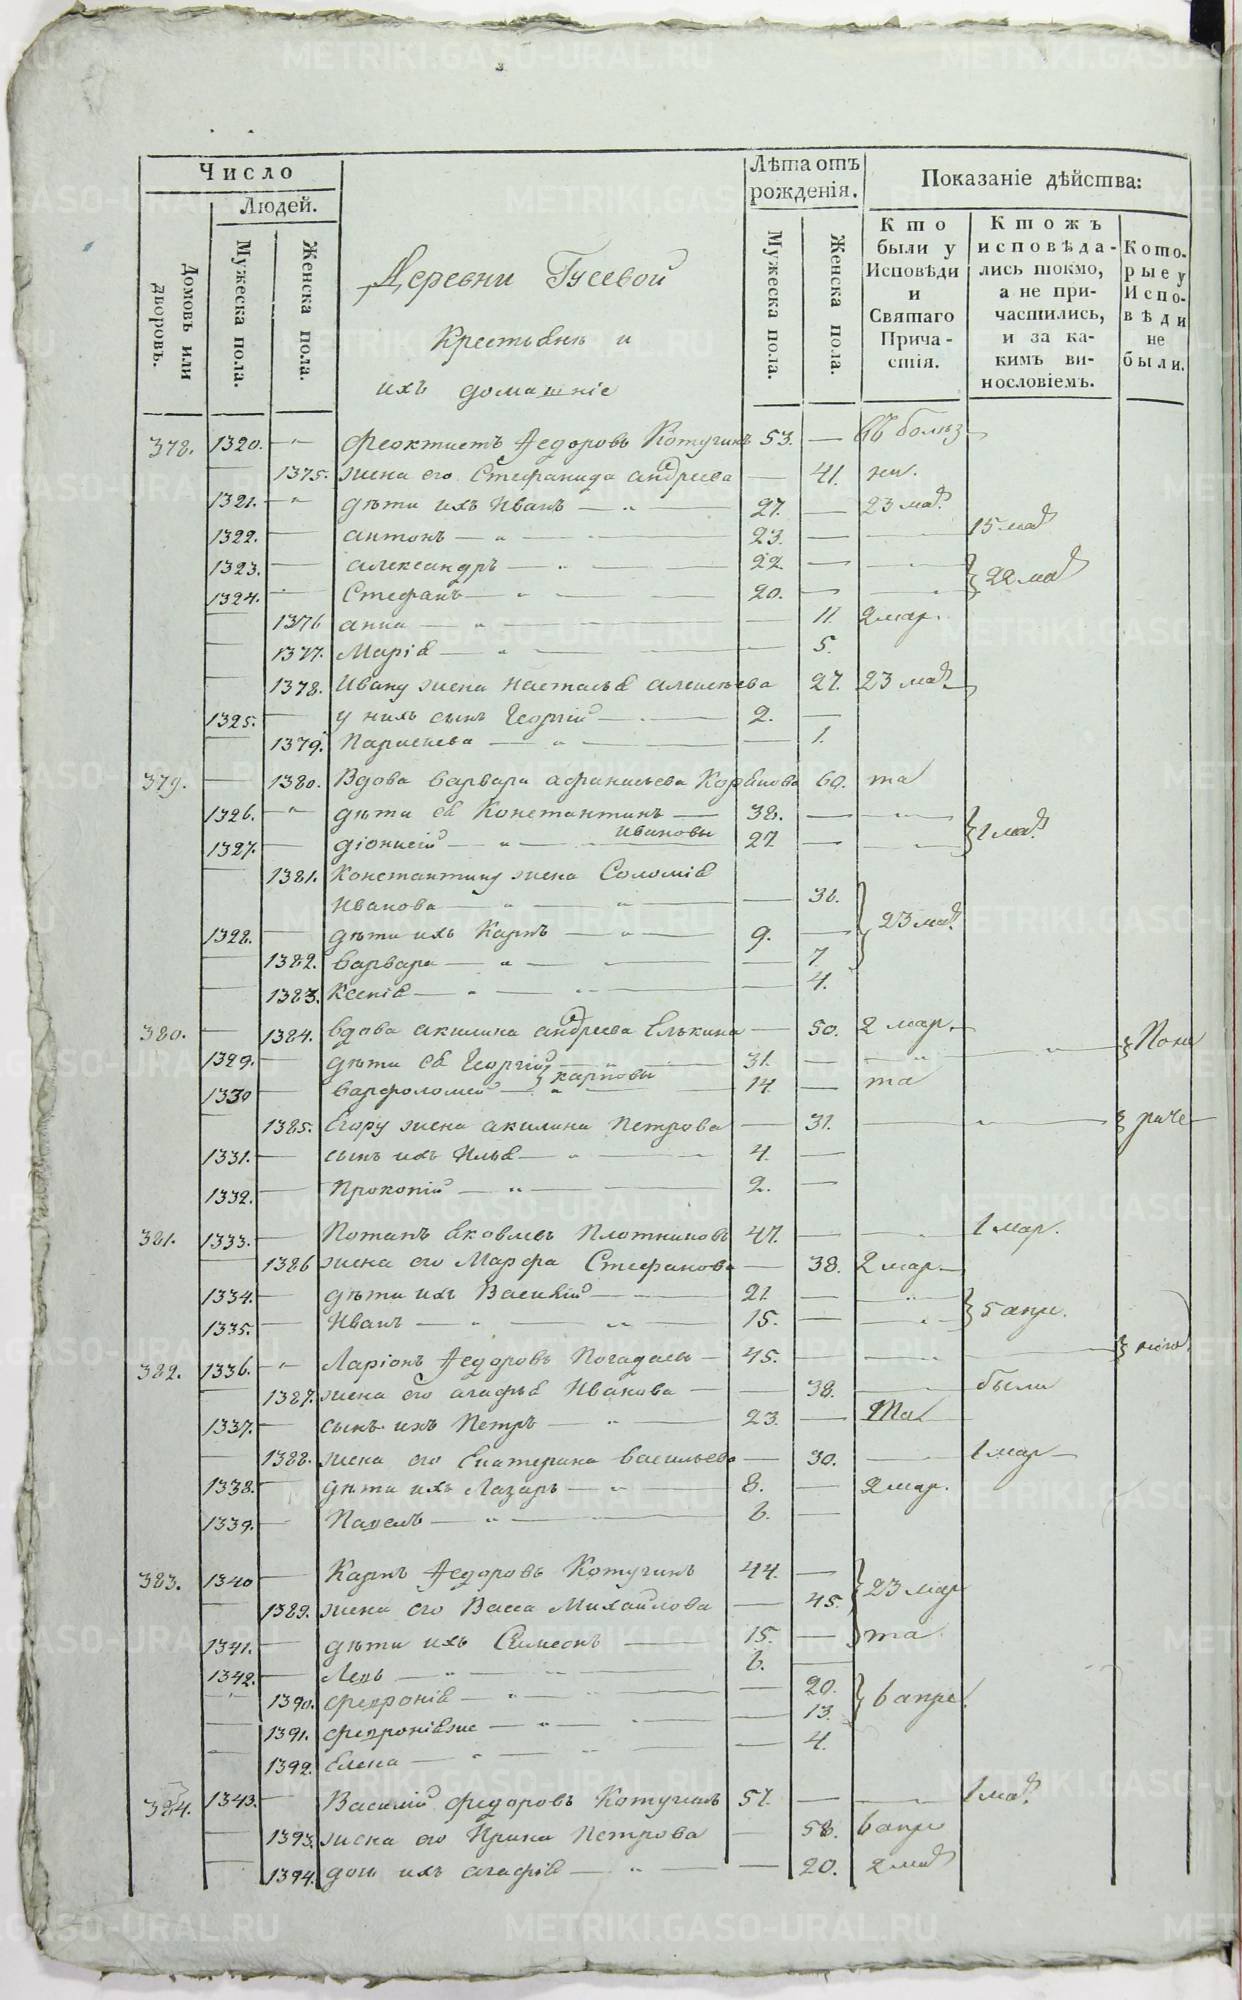 Число
Людей.
Домовъ или дворовъ.
Мужеска пола.
Женска пола.
Лѣта отъ рожденія.
Мужеска пола.
Женска пола.
Показаніе дѣйства:
Кто были у Исповѣди и Святаго Причастія.
Ктожъ исповѣдались токмо, а не причастились, и за какимъ винословіемъ.
Которые у Исповѣди не были.
Деревни Гусевой
Крестьянѣ и
ихъ домашніе
378. 1320. — Феоктистъ Федоровъ Котугинъ 53. —
— 1375. жена его Стефанида Андреева — 41.
1321. дѣти ихъ Иванъ — 27. — 23 ма
1322. — Антонъ — 23. — 15 ма
1323. — Александръ — 22 — } 22 ма
1324. — Стефанъ — 20. —
— 1376 Анна — 11. 2 мар.
— 1377. Марія — 5.
— 1378. Ивану жена Настасья Алексѣева 27. 23 ма
1325. — у нихъ сынъ Георгій — 2. —
— 1379. Парасkева — 1.
379. — 1380. Вдова Варвара Афанасьева 60. та
1326. дѣти ея Константинъ — 38. —
Ивановы
1327. — Діонисій — 27 — } 1 ма
— 1381. Константину жена Соломія
Иванова — 36.
1328. — дѣти ихъ Карпъ — 9. — } 23 ма
— 1382. Варвара — 7
— 1383. Ксенія — 4.
380. — 1384. вдова Акилина Андреева Елькина — 50. 2 мар.
1329. — дѣти ея Георгій — 31. —
Карповы
1330 — Варфоломей — 14. — та
— 1385. Егору жена Акилина Петрова — 31.
1331. — сынъ ихъ Илья — 4. —
1332. — Прокопій — 2. —
381. 1333. — Потапъ Яковлевъ Плотниковъ 47. — 1 мар.
— 1386 жена его Марфа Стефанова — 38. 2 мар.
1334. — дѣти ихъ Василій — 21. —
1335. — Иванъ — 15. — } 5 апре.
382. 1336. Ларіонъ Федоровъ — 45. —
— 1387. жена его Агафья Иванова — 38. — были
1337. — сынъ ихъ Петръ — 23. — та
— 1388. жена его Екатерина Васильева — 30. — 1 мар
1338. — дѣти ихъ Лазарь — 8. — 2 мар.
1339. — Павелъ — 6. —
383. 1340 — Карпъ Федоровъ Котугинъ 44. — } 23 мар
— 1389. жена его Васса Михайлова — 45.
1341. — дѣти ихъ Симеонъ — 15. — та
1342. — Левъ — 6. —
— 1390. Февронія — 20. } 6 апре.
— 1391. Феврония же — 13.
— 1392. Елена — 4.
384. 1343. — Василій Федоровъ Котугинъ 57. — 1 ма
— 1393. жена его Ирина Петрова — 58. 6 апре
— 1394. дочь ихъ Агафія — 20. 2 ма
METRIKI.GASO-URAL.RU